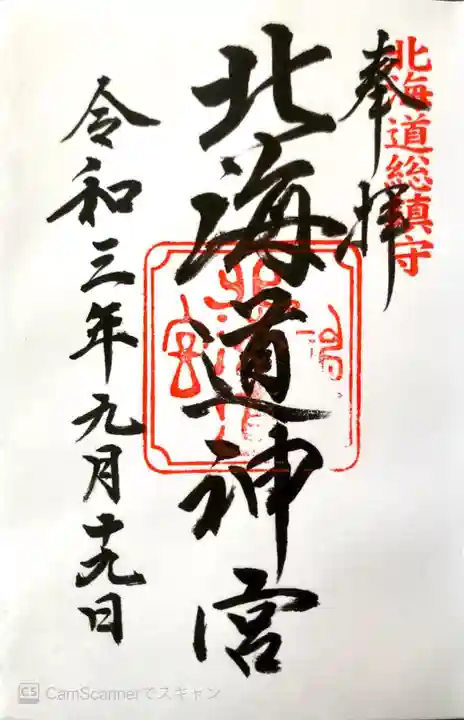 北海道総鎮守
奉拝
北海道神宮
令和三年九月十九日
CS CamScannerでスキャン